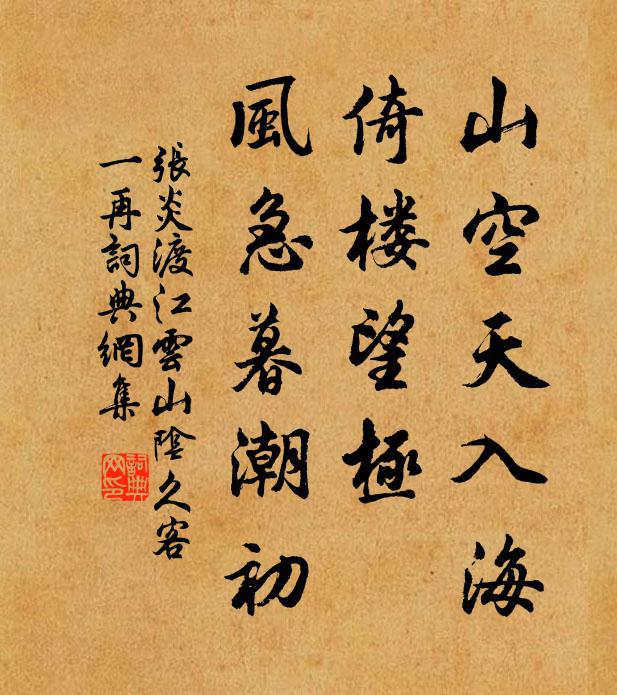 山空天入海
倚楼望極
風急暮潮初
張炎渡江雲山陰久客
一再詞典網集
詞典网印